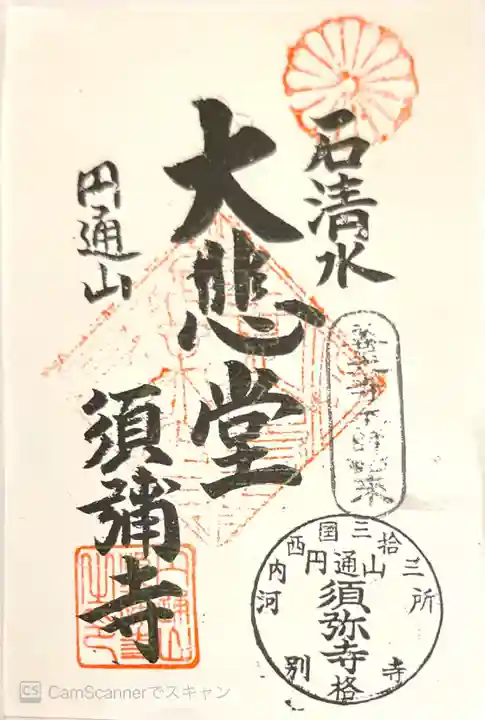 石清水
大悲堂
円通山
須彌寺
河内西国三拾三所
円通山
須弥寺
別格寺
CS CamScannerでスキャン